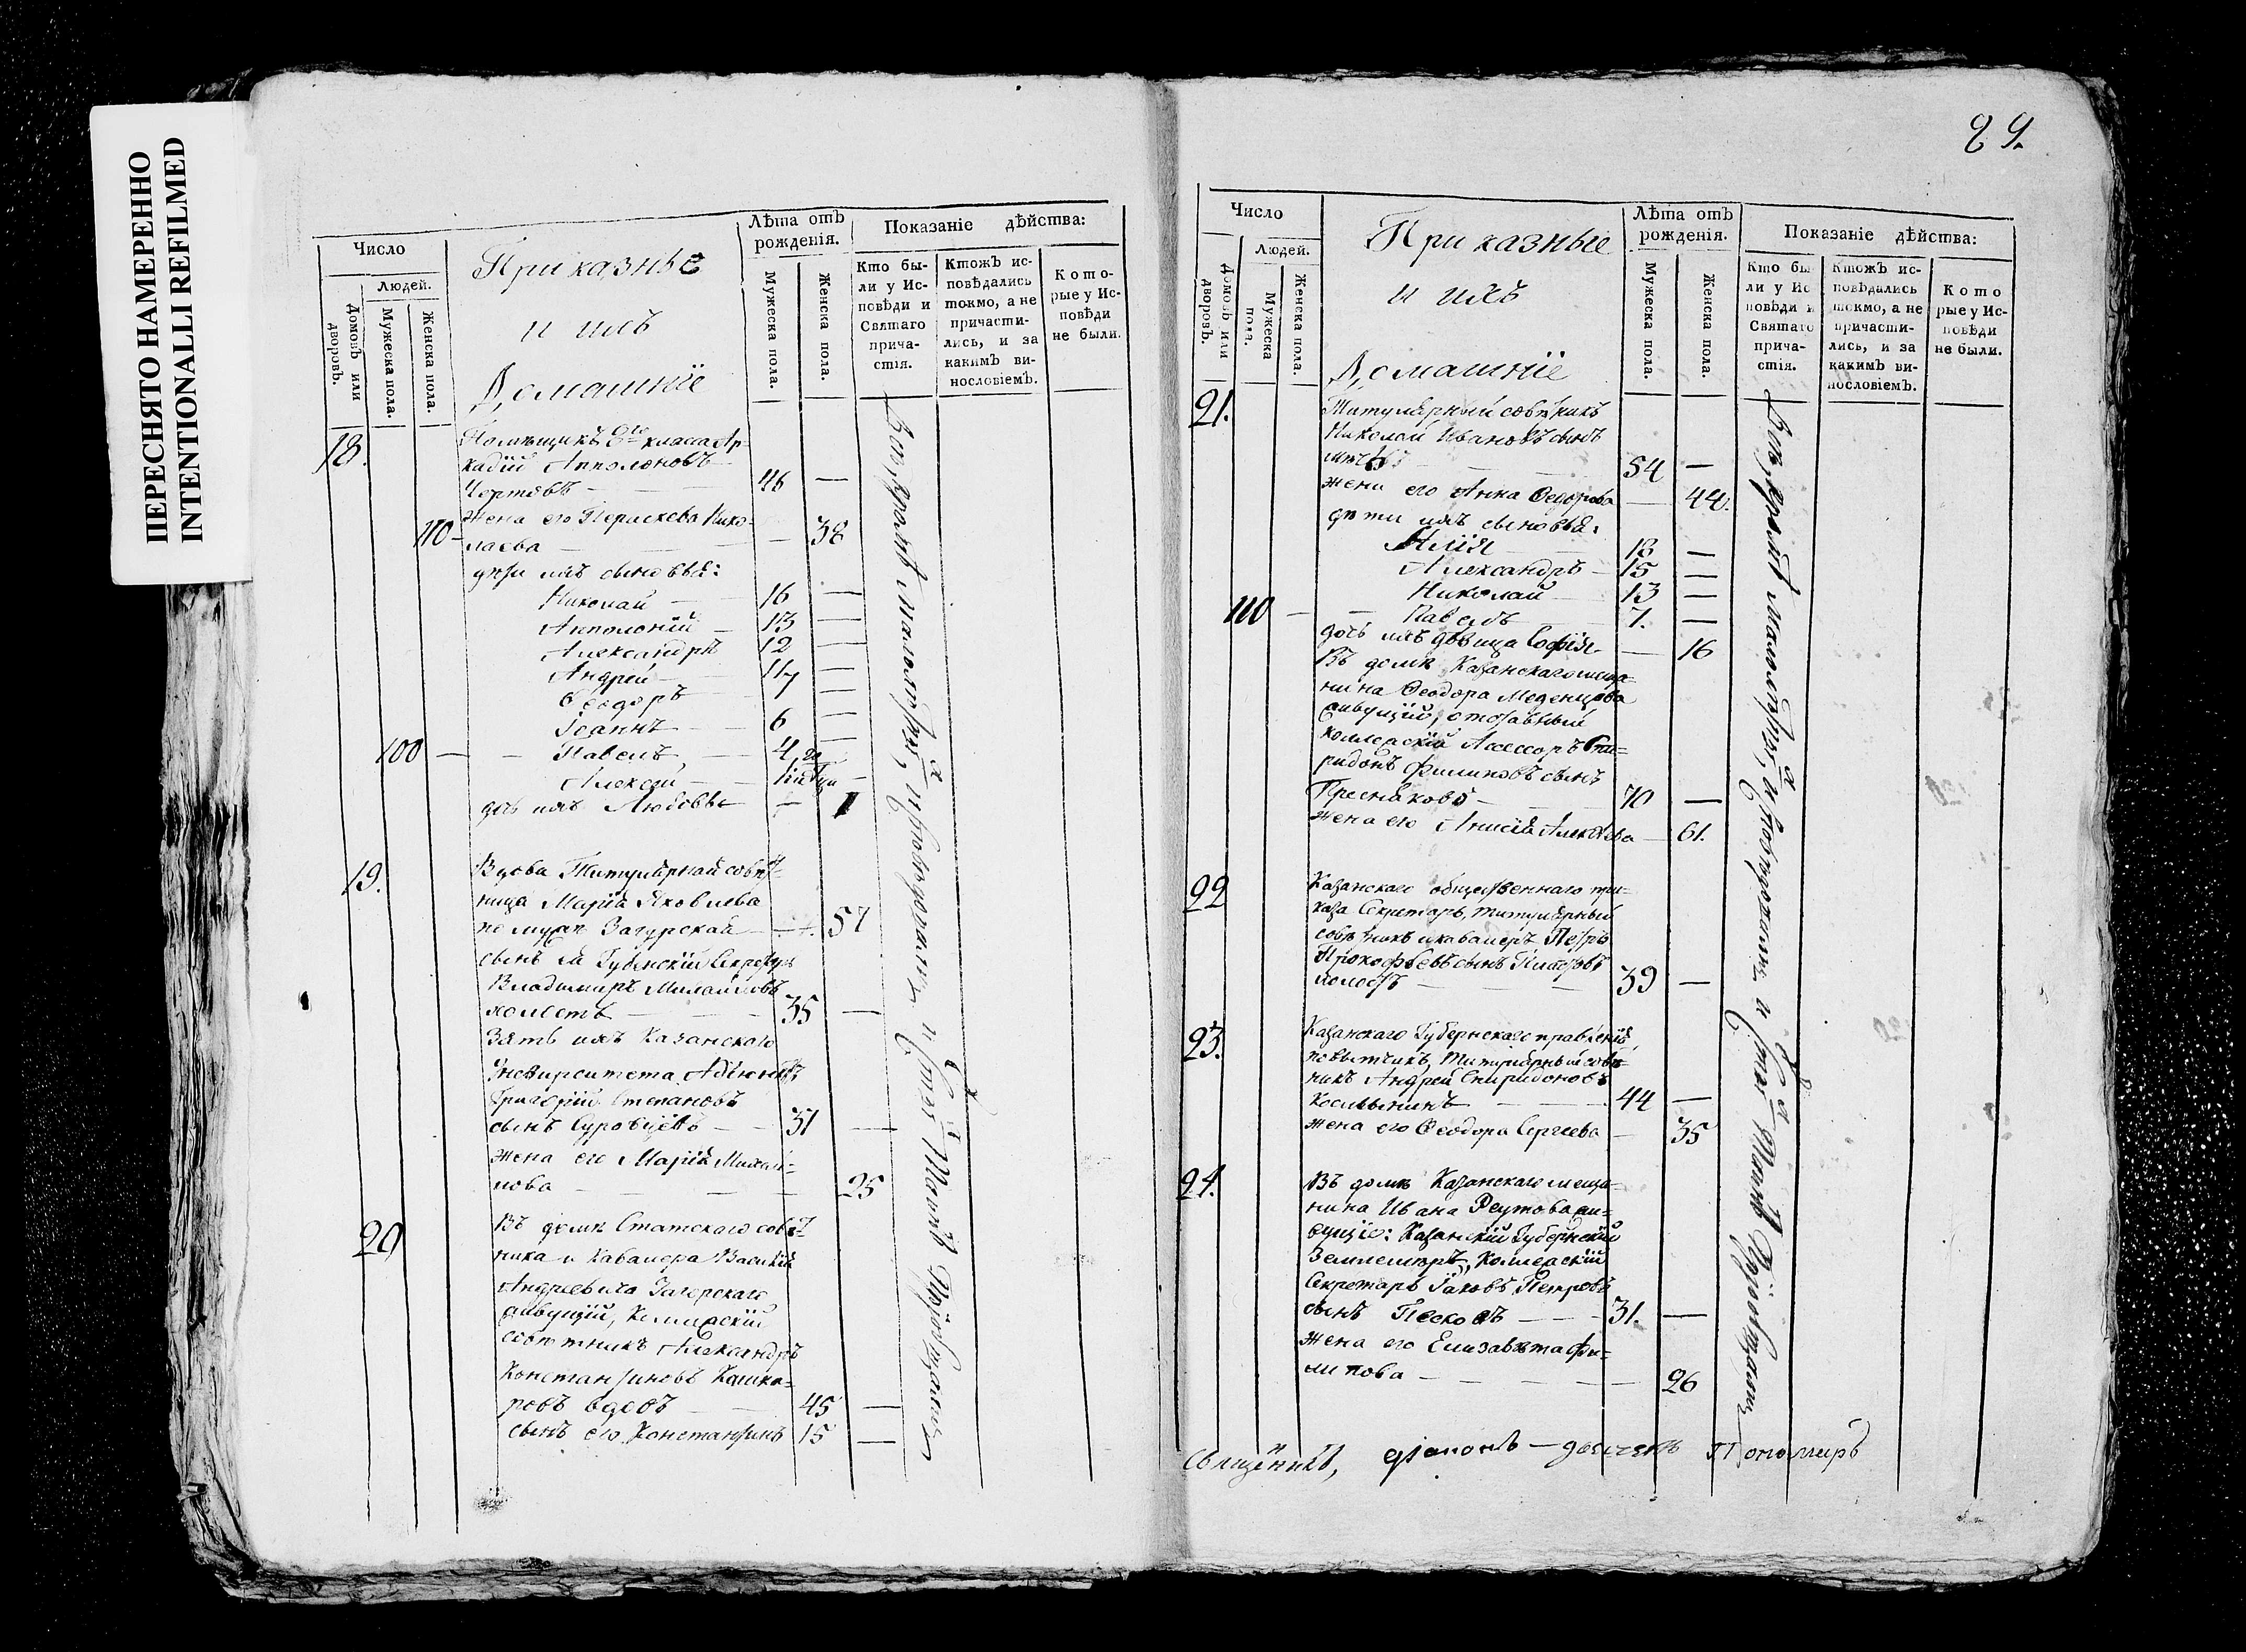 ПЕРЕСНЯТО НАМЕРЕННО
INTENTIONALLI REFILMED
Число
Людей.
Домовъ или дворовъ.
Мужеска пола.
Женска пола.
Приказные
и ихъ
Домашніе
Лѣта отъ рожденія.
Мужеска пола.
Женска пола.
Показаніе дѣйства:
Кто были у Исповѣди и Святаго причастія.
Ктожъ исповѣдались токмо, а не причастились, и за какимъ винословіемъ.
Которые у Исповѣди не были.
18.
Помѣщикъ 8го класса Ар-
кадій Апполоновъ
Чертовъ — 46 —
110 —
Жена его Параскева Нико-
лаева — 38
дѣти ихъ сыновья:
Николай — 16 —
Апполоній — 13 —
Александръ 12 —
Андрей — 11 —
Ѳеодоръ 7 —
Іоаннъ 6 —
100 — Павелъ, 4 —
Алексѣй
дочь ихъ Любовь —
19.
Вдова Титулярная совѣт-
ница Марія Яковлева
по мужѣ Загурская — 57
сынъ ея Губернскій Секретарь
Владимиръ Михайловъ
холостъ — 35 —
Зять ихъ Казанскаго
Университета Адъюнктъ
Григорій Степановъ
сынъ Суровцевъ — 31 —
Жена его Марія Михай-
лова — 25
20
Въ домѣ Статскаго совѣт-
ника и Кавалера Василія
Андреевича Загорскаго
живущій, Коллежскій
совѣтникъ Александръ
Константиновъ Кашка-
ровъ вдовъ — 45 —
сынъ его Константинъ 15 —
89.
Число
Людей.
Домовъ или дворовъ.
Мужеска пола.
Женска пола.
Приказные
и ихъ
Домашніе
Лѣта отъ рожденія.
Мужеска пола.
Женска пола.
Показаніе дѣйства:
Кто были у Исповѣди и Святаго причастія.
Ктожъ исповѣдались токмо, а не причастились, и за какимъ винословіемъ.
Которые у Исповѣди не были.
21.
Титулярный совѣтникъ
Николай Ивановъ сынъ
54 —
жена его Анна Ѳедорова — 44.
дѣти ихъ сыновья:
Илія
Александръ — 15 —
Николай — 13 —
110 — Павелъ 7. —
дочь ихъ дѣвица Софія — 16
Въ домѣ Казанскаго меща-
нина Ѳеодора Меденцова
живущій, отставный
коллежскій Ассессоръ Спи-
ридонъ Филиповъ сынъ
Пресняковъ — 70 —
жена его Анисія Алексѣева — 61.
22
Казанскаго общественнаго при-
каза Секретарь, титулярный
совѣтникъ и кавалеръ Петръ
Прокофьевъ сынъ Платовъ
холостъ — 39 —
23.
Казанскаго Губернскаго правленія,
повытчикъ, Титулярный совѣт-
никъ Андрей Спиридоновъ
Косилынинъ — 44 —
жена его Ѳеодора Сергеева — 35
24.
Въ домѣ Казанскаго меща-
нина Ивана Реутова жи-
вущіе: Казанскій Губернскій
Землемѣръ, Коллежскій
Секретарь Іаковъ Петровъ
сынъ Песковъ — 31. —
жена его Елизавета Фи-
липова — 26
Священникъ, діаконъ — дьячекъ Пономарь